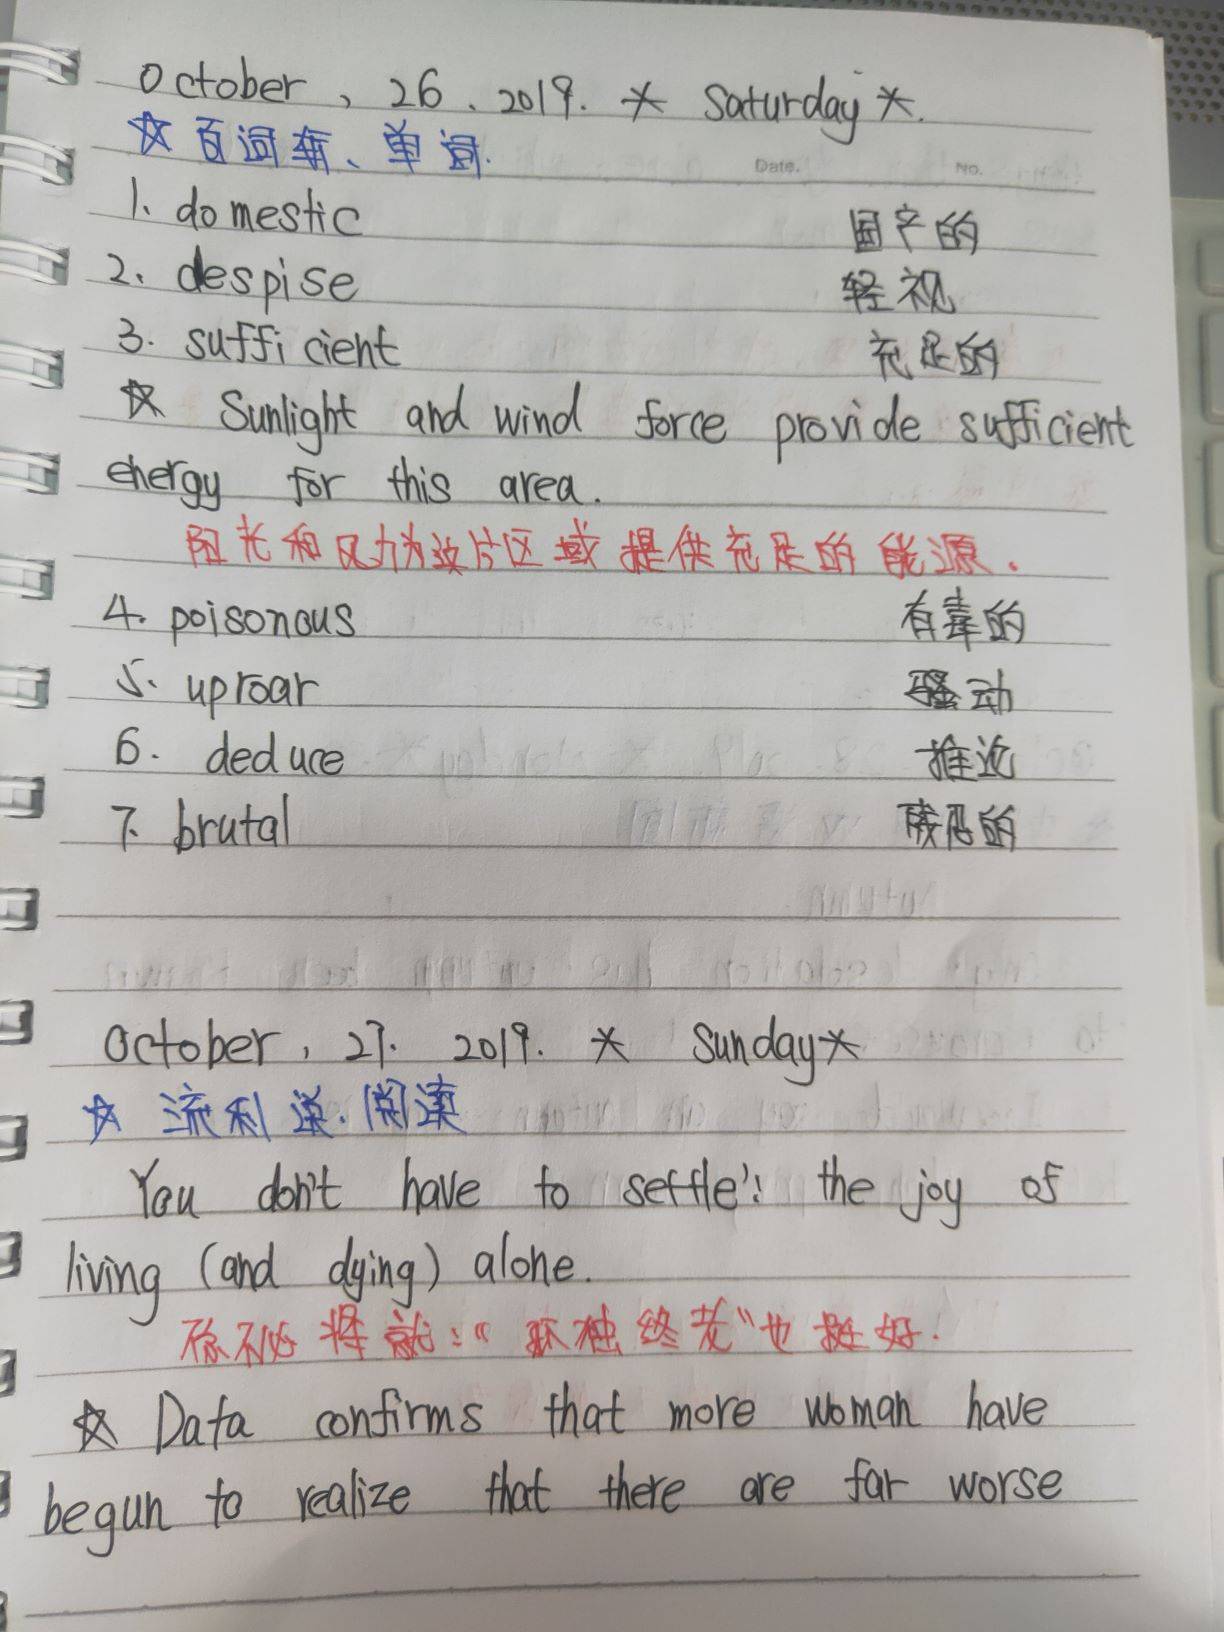 October, 26. 2019. * Saturday *.
☆ 百词斩、单词.
Date. No.
1. domestic 国产的
2. despise 轻视
3. sufficient 充足的
☆ Sunlight and wind force provide sufficient
energy for this area.
阳光和风力为这片区域提供充足的能源.
4. poisonous 有毒的
5. uproar 骚动
6. deduce 推论
7. brutal 残忍的
October, 27. 2019. * Sunday *
☆ 流利说.阅读
You don't have to settle': the joy of
living (and dying) alone.
你不必将就:“孤独终老”也挺好.
☆ Data confirms that more woman have
begun to realize that there are far worse